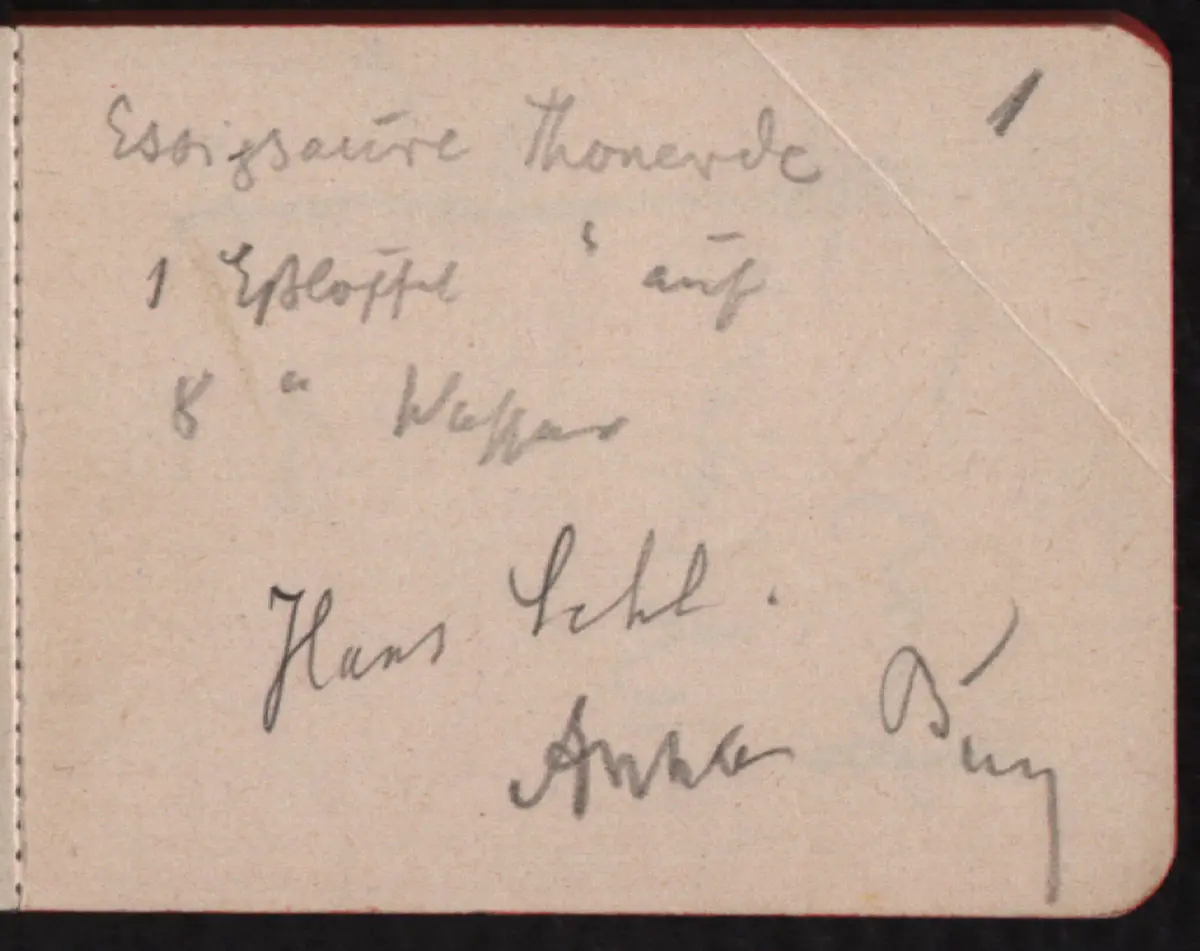 1
Essigsaure Thonerde
1 Eßlöffel " auf
8 " Wasser
Hans Sehl.